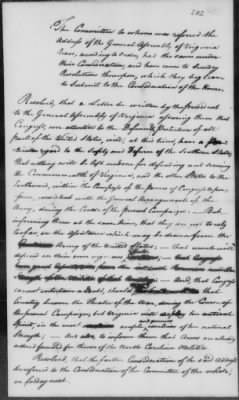 242
The Committee to whom was referred the
Address of the General Assembly of Virginia
have, according to order, had the same under
their Consideration, and have come to sundry
Resolutions thereupon, which they beg leave
to submit to the Consideration of the House
Resolved, that a Letter be written by the President
to the General Assembly of Virginia assuring them that
Congress, ever attentive to the Defence & Protection of all
parts of the United States, will, at this time, have a
regard to the Safety and Defence of the Southern States,
that nothing will be left undone for defending and securing
the Commonwealth of Virginia, and the other States to the
Southward, within the Compass of the Powers of Congress to per-
form, consistent with the General Arrangements of the
War, during the Course of the present Campaign: But
informing them at the same time, that they are not to rely
too far, on the Assistance which may be drawn from the
Army of the United States; that much will
depend on their own vigorous
and that Congress
cannot entertain a doubt, should that
Country become the Theatre of the War, during the Course of
the present Campaign, but Virginia will display her antient
Spirit, in the most ample exertions of her natural
Strength; also, to inform them that Arms are already
ordered for those of the North Carolina Militia.
Resolved, that the farther Consideration of the said Address
be referred to the Consideration of the Committee of the whole,
on friday next.